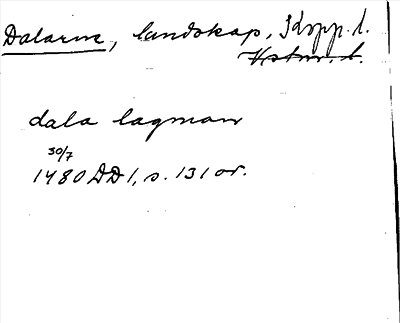 Dalarne, landskap, Kopp. l.
Vstm. l.
dala lagman
30/7
1480 DD 1, s. 131 or.